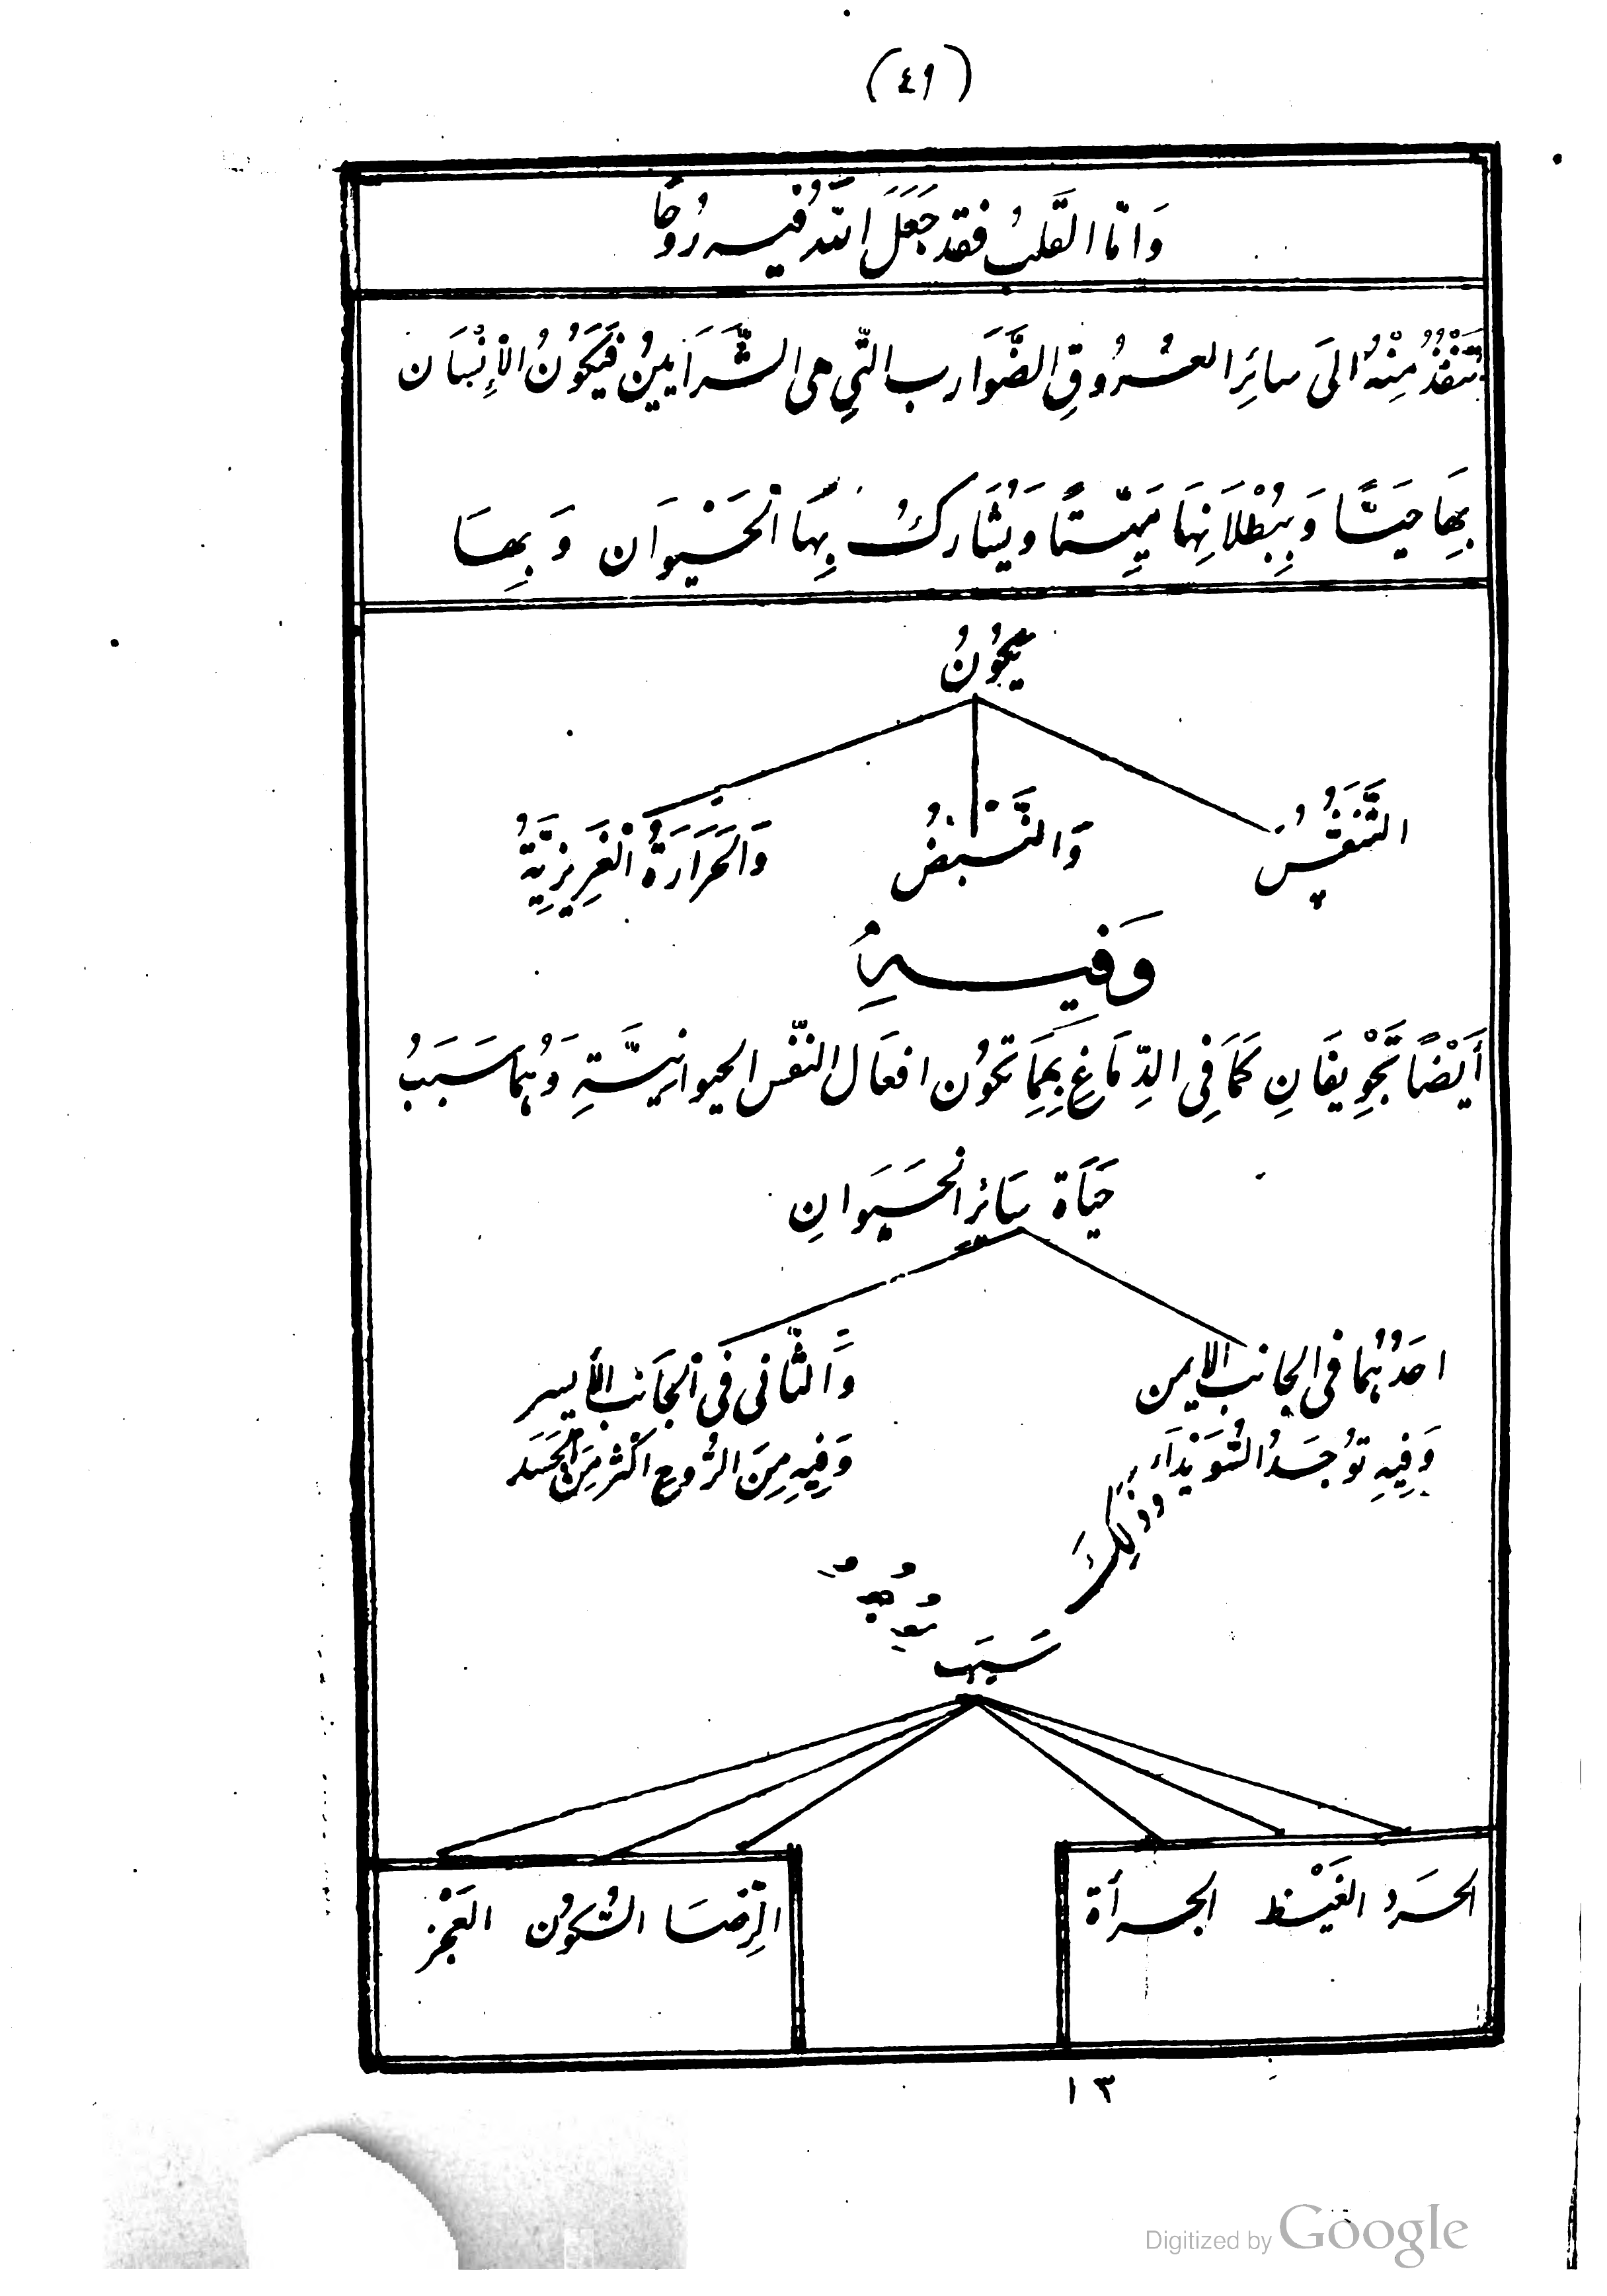 (٤٩)
وَامّا القَلبُ فقد جَعَلَ اللّٰهُ فيه رُوحًا
تَنْفُذُ مِنْهُ الىَ سائِرِ العُرُوقِ الضَّوَارب التّي هى الشَّرَايينُ فَيَكوُنُ الْاِنْسَان
بِهَا حَيًّا وَبِبُطْلَانِهَا مَيِّتًا وَيُشَاركُ بِهَا الْحَيْوَان وَبِهَا
يَكوُنُ
التَّنَفُّسُ وَالنَّبْضُ وَالحَرَارَةُ الْغَرِيزِيَّةُ
وَفيهِ
أَيْضًا تَجْوِيفَانِ كَمَا فِى الدِّمَاغِ بِهِمَا تَكوُن افعَال النّفس الحيوانيَّةِ وَهُما سَبَبُ
حَيَاة سَائِرِ الحَيَوانِ
احَدُهُمَا فى الجانب الايمن
وَفِيهِ توُجَدُ السُّوَيْدَاء
وَالثّانى فى الْجَانب الأَيسر
وَفِيهِ مِنَ الرُّوح اكْثر مِنَ الْجَسَد
وذٰلِكَ
سَبَب
الحَرَد الغَيْظ الجرأة
الرِّضَا السُّكوُن العَجْز
١٣
Digitized by Google